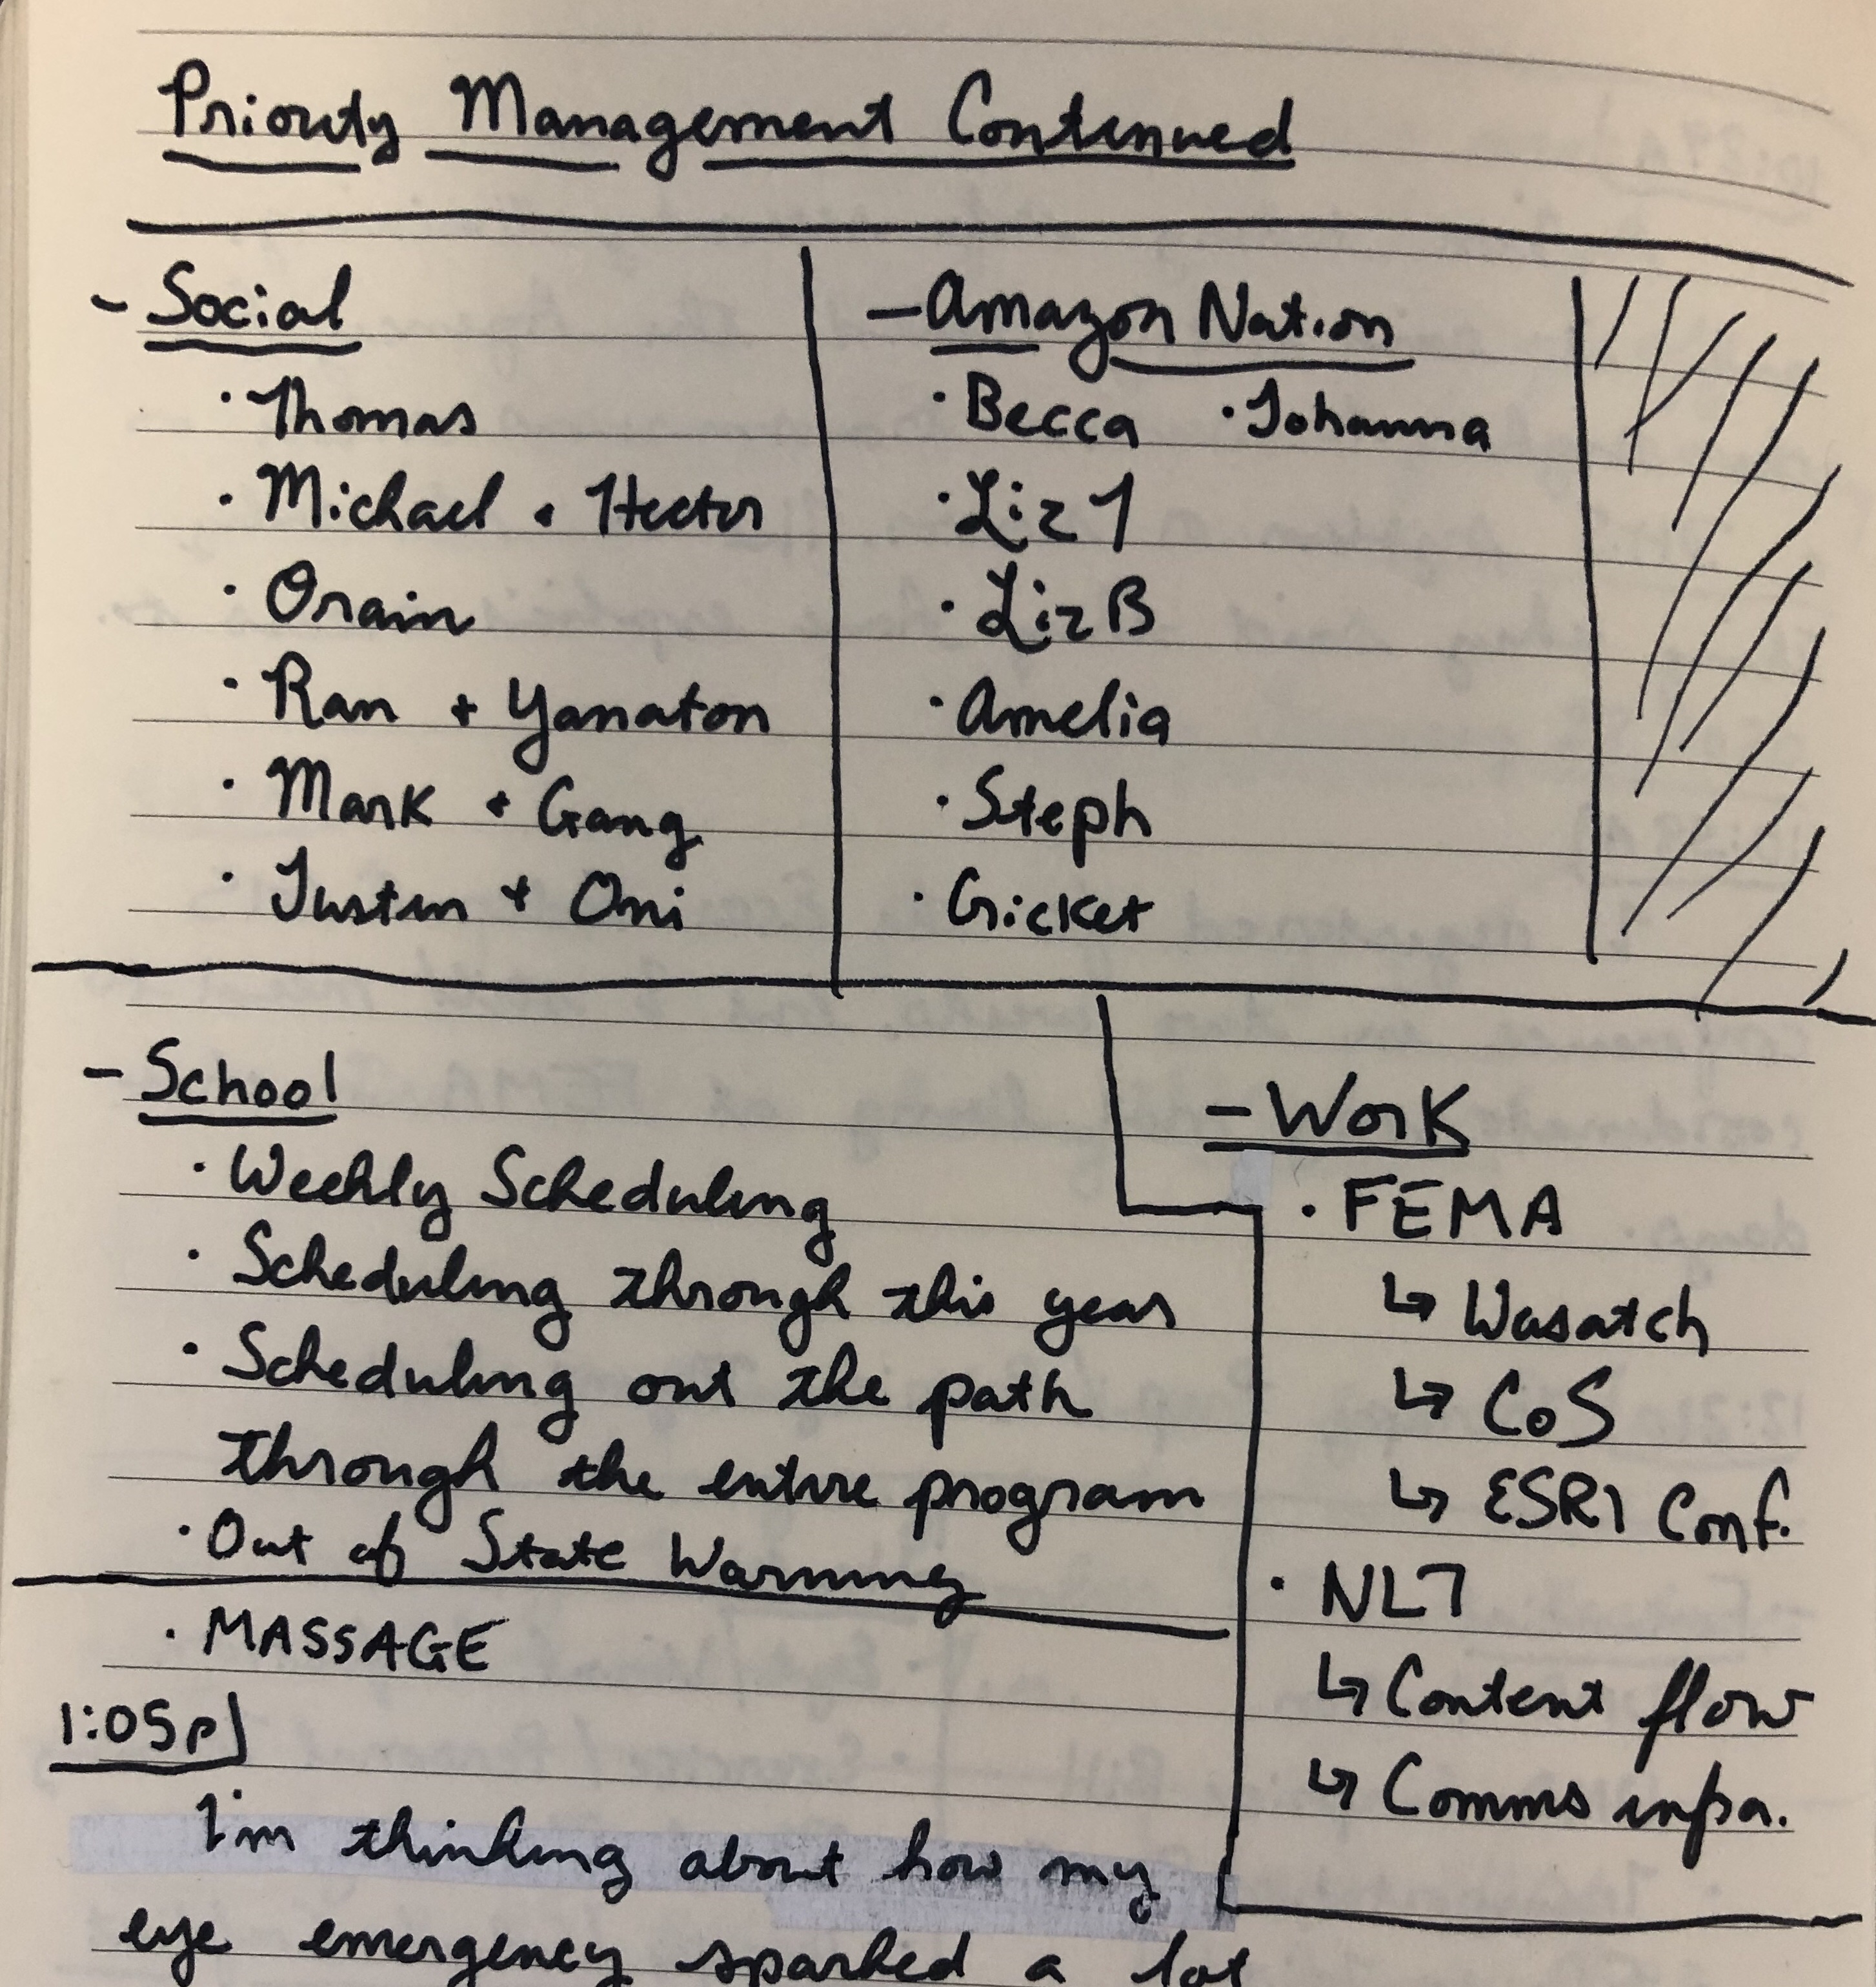 Priority Management Continued
- Social
· Thomas
· Michael + Hector
· Orain
· Ran + Yanaton
· Mark + Gang
· Justin + Oni
- Amazon Nation
· Becca · Johanna
· Liz
· Liz B
· Amelia
· Steph
· Cricket
- School
· Weekly Scheduling
· Scheduling through this year
· Scheduling out the path
through the entire program
· Out of State Warning
- Work
· FEMA
↳ Wasatch
↳ CoS
↳ ESRI Conf.
· NLT
↳ Content flow
↳ Comms infra.
· MASSAGE
1:05p
I'm thinking about how my
eye emergency sparked a lot